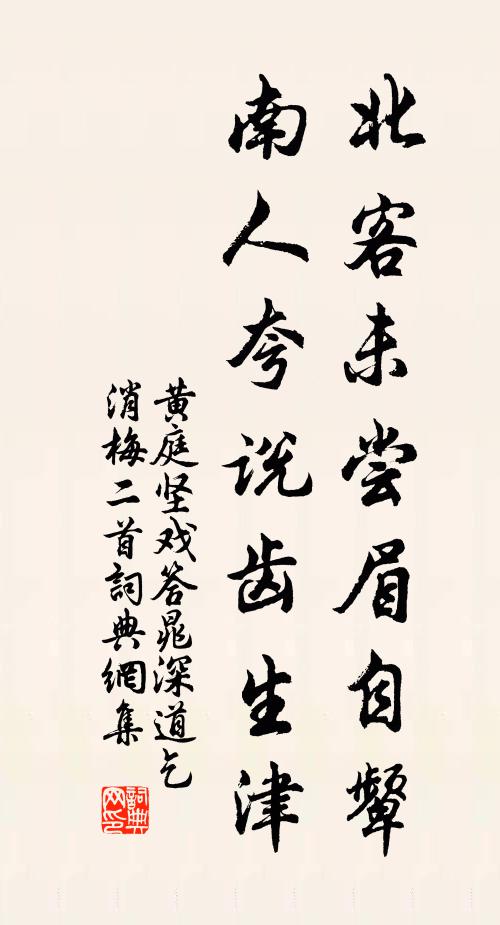 北客未尝眉自颦
南人夸说齿生津
黄庭坚戏答晁深道乞
消梅二首詞典網集
詞典
网印